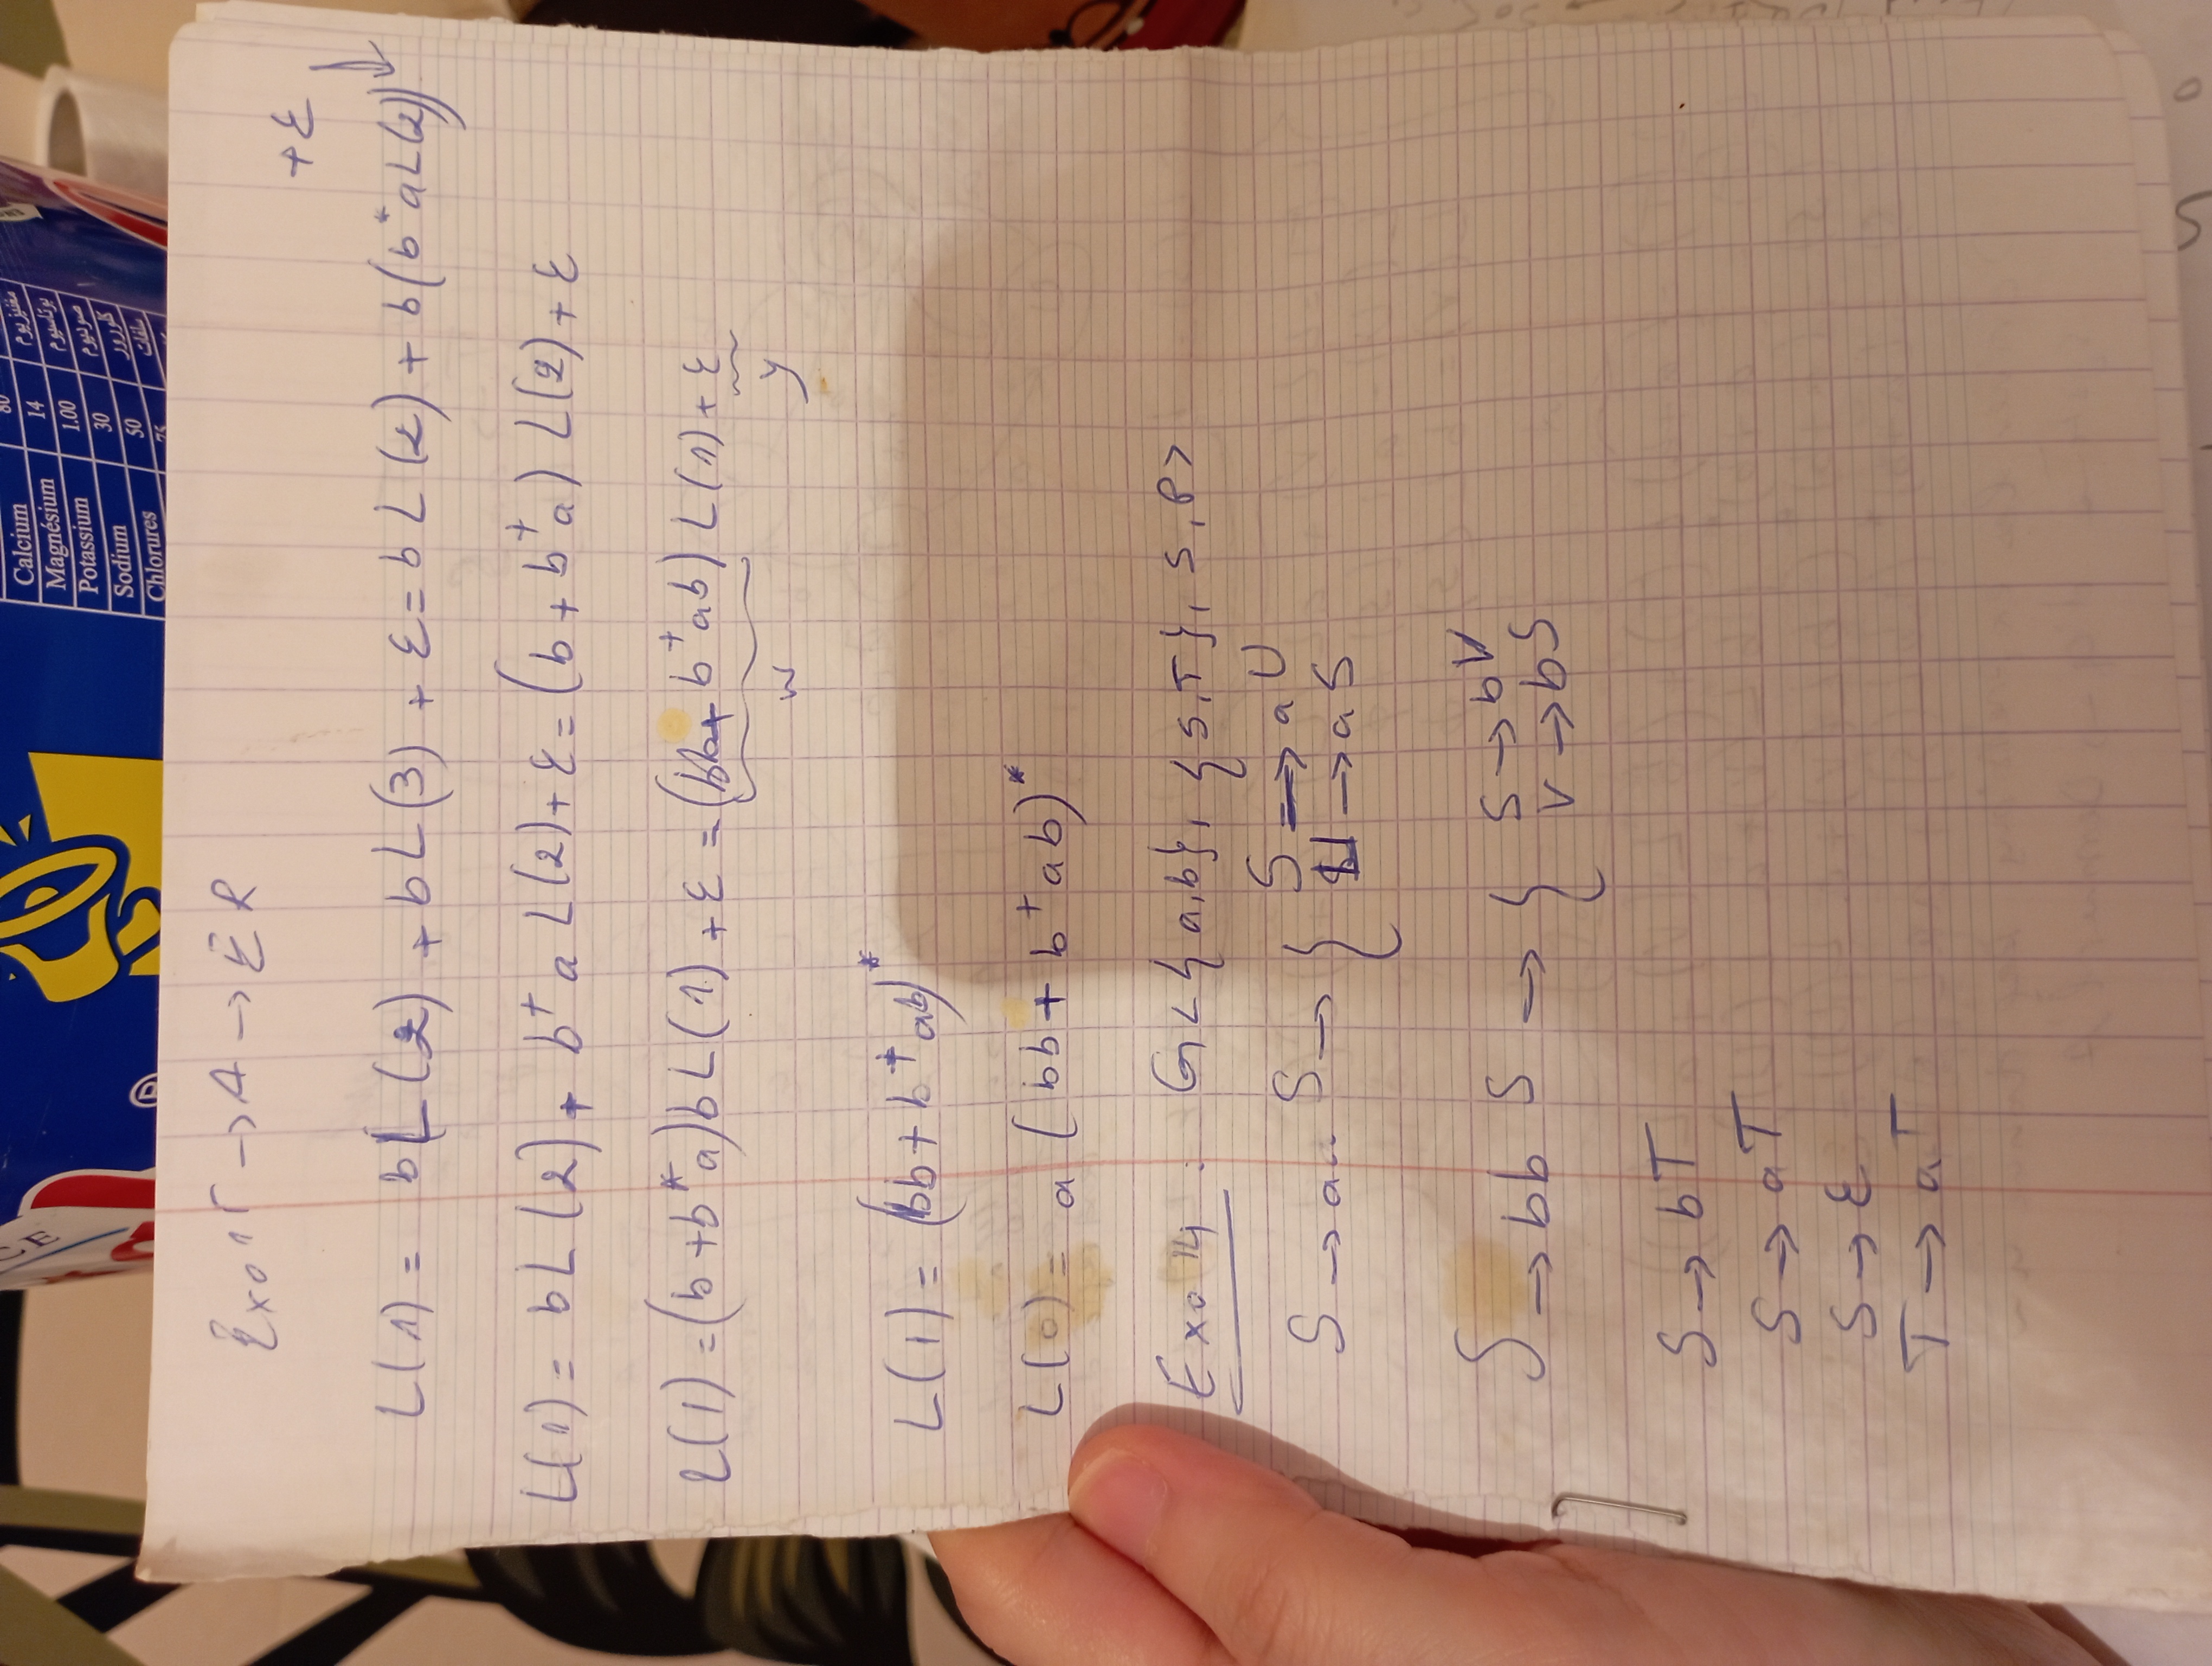 CE
Calcium 80 مغنيزيوم
Magnésium 14 بوتاسيوم
Potassium 1.00 صوديوم
Sodium 30 كلورور
Chlorures 50 سلفات
75
®
Exo 15 → A → ER
+ε
L(1) = bL(2) + bL(3) + ε = bL(2) + b(b*aL(2))
L(1) = bL(2) + b⁺aL(2) + ε = (b + b⁺a) L(2) + ε
L(1) = (b + b*a)bL(1) + ε = (bb + b⁺ab) L(1) + ε
w y
L(1) = (bb + b⁺ab)*
L(0) = a (bb + b⁺ab)*
Exo 14 : G < {a,b}, {S,T}, S, P >
S → aa S → { S → aU
U → aS
S → bb S → { S → bV
V → bS
S → bT
S → aT
S → ε
T → aT